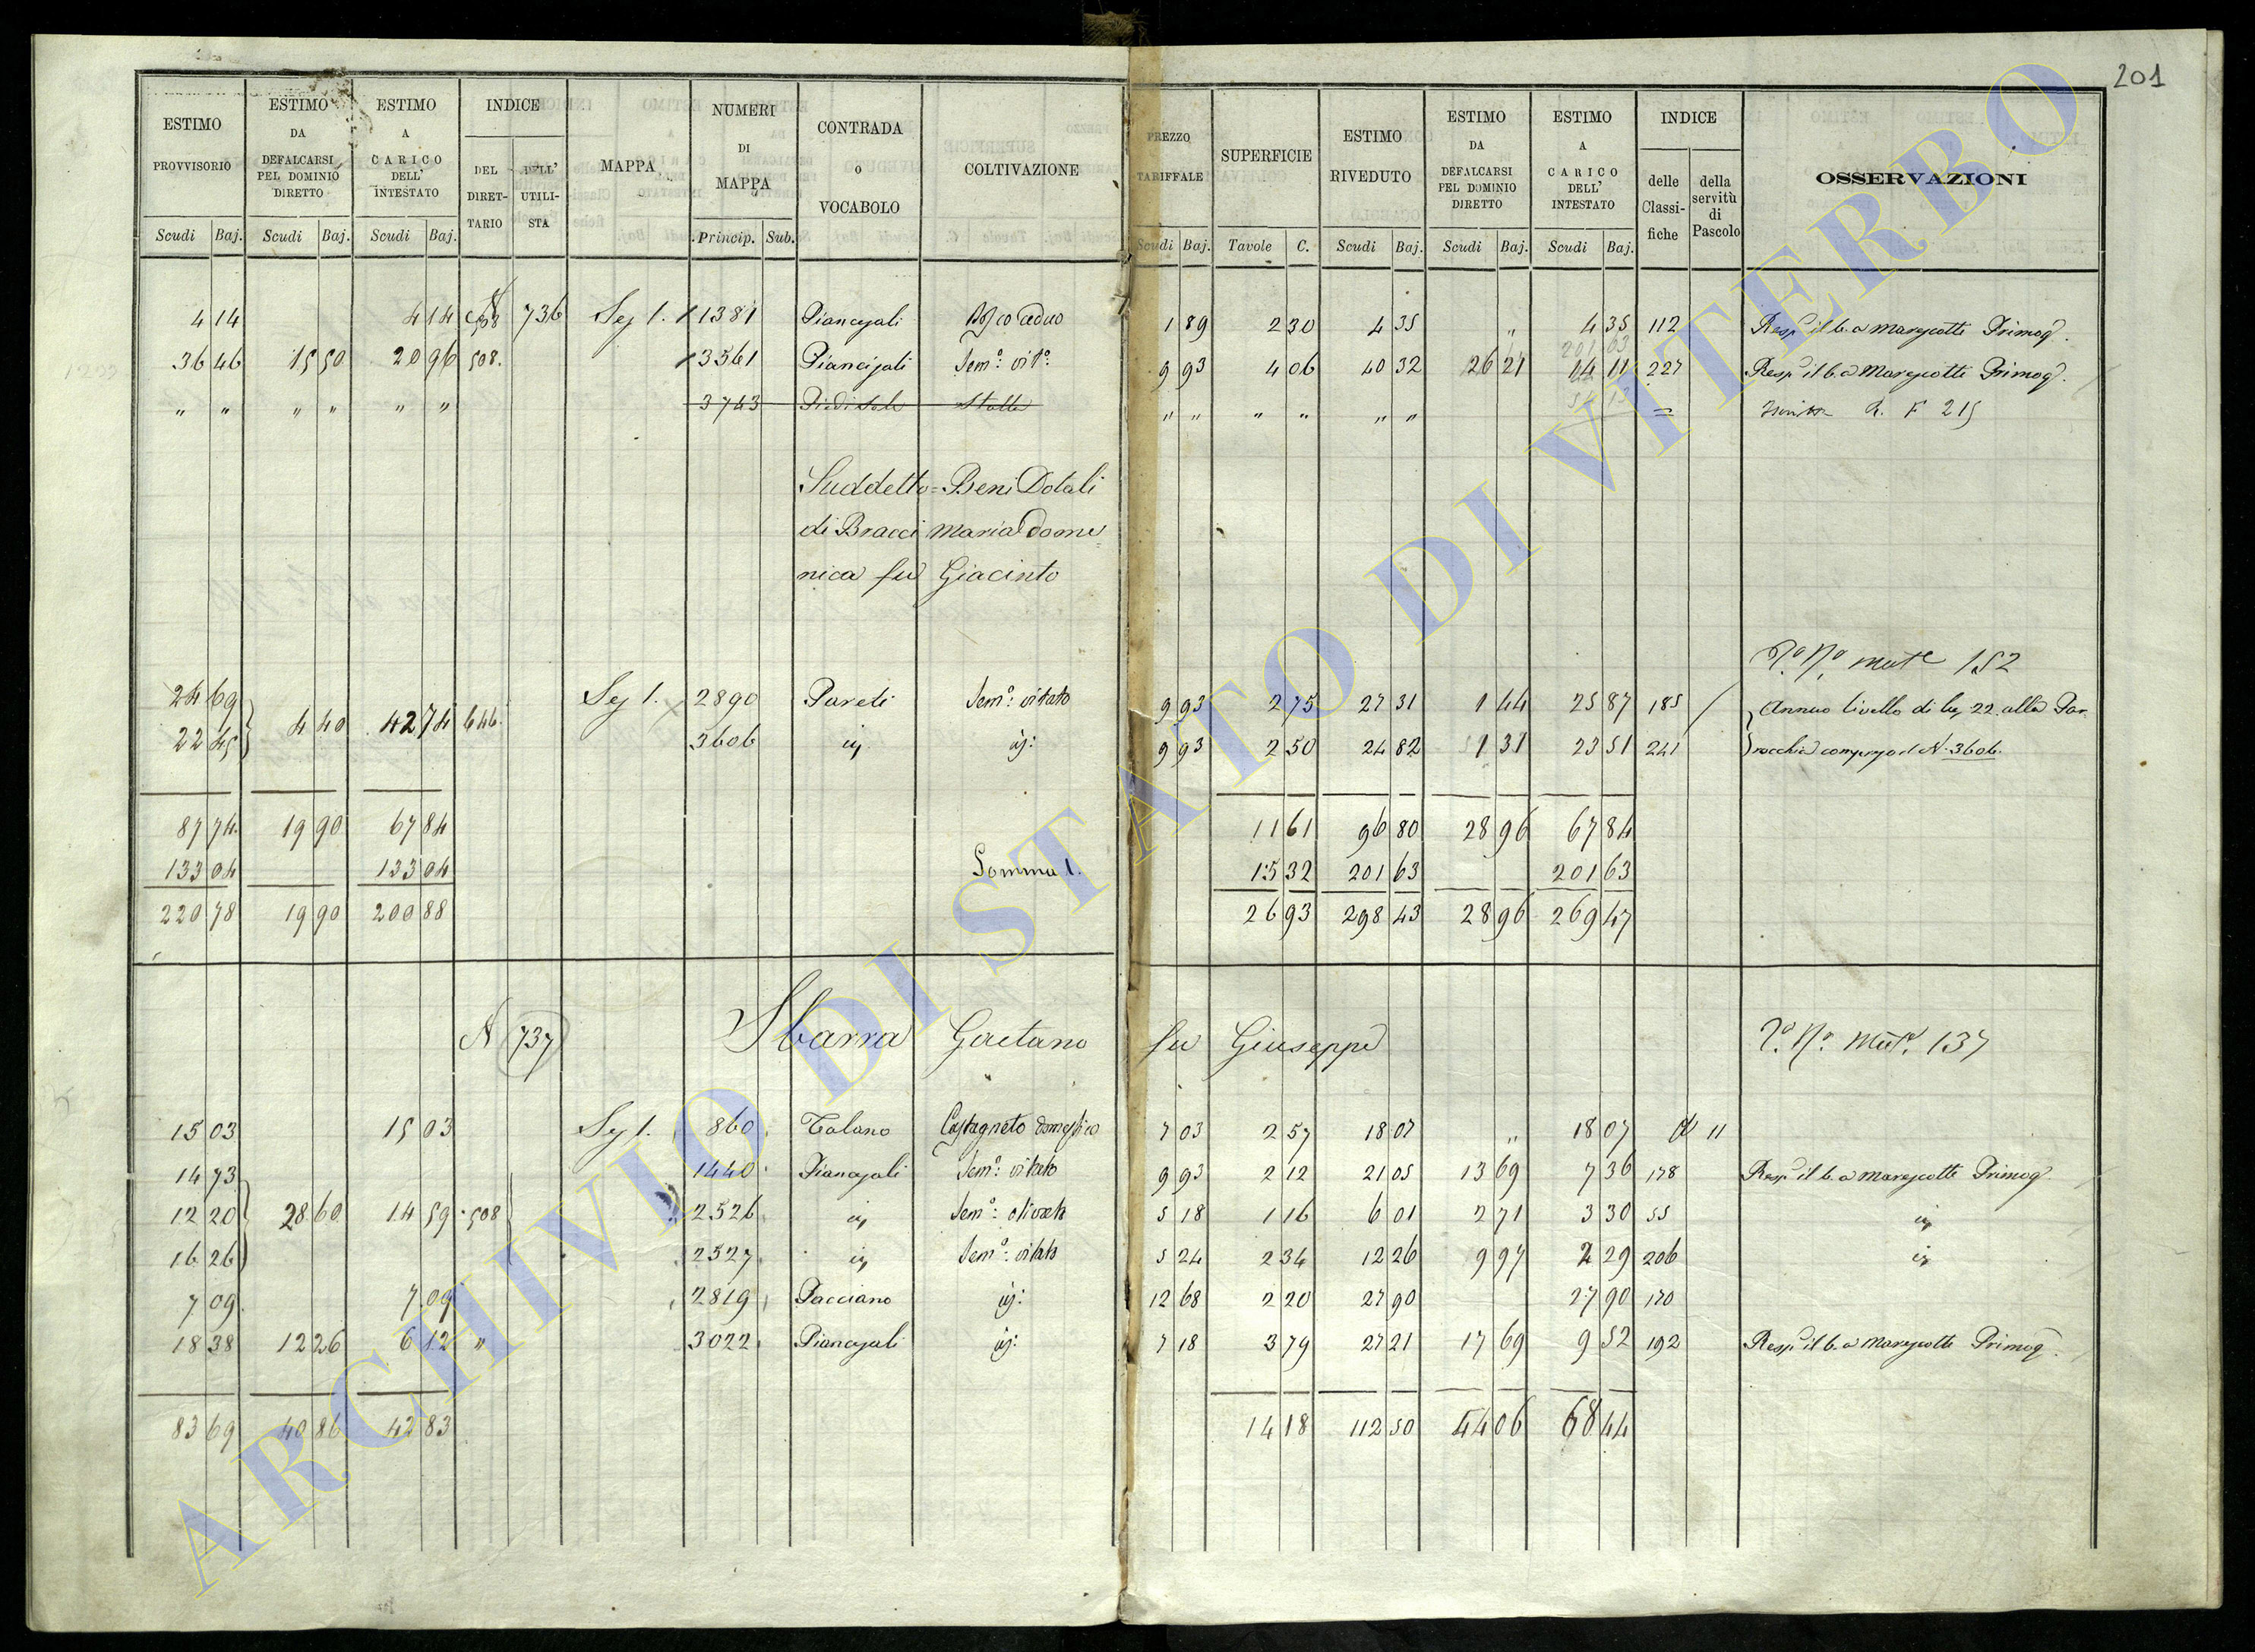 201
ESTIMO PROVVISORIO | ESTIMO DA DEFALCARSI PEL DOMINIO DIRETTO | ESTIMO A CARICO DELL' INTESTATO | INDICE DEL DIRETTARIO | DELL' UTILISTA | MAPPA | NUMERI DI MAPPA | CONTRADA o VOCABOLO | COLTIVAZIONE | PREZZO TARIFFALE | SUPERFICIE | ESTIMO RIVEDUTO | ESTIMO DA DEFALCARSI PEL DOMINIO DIRETTO | ESTIMO A CARICO DELL' INTESTATO | INDICE delle Classifiche | della servitù di Pascolo | OSSERVAZIONI
Scudi Baj. | Scudi Baj. | Scudi Baj. | Princip. Sub. | Scudi Baj. | Tavole C. | Scudi Baj. | Scudi Baj. | Scudi Baj.
4 14 | 4 14 | 508 | 736 | Sez 1. | 1381 | Piancajali | Bosco ceduo | 1 89 | 2 30 | 4 35 | " | 4 35 | 112 | Resp. il b. a Marescotti Primog.
201 63
36 46 | 15 50 | 20 96 | 508. | 3561 | Piancijali | Sem.º vit.º | 9 93 | 4 06 | 40 32 | 26 21 | 14 11 | 227 | Resp. il b. a Marescotti Primog.
" " | " " | " " | 3743 | Piedi Sole | Stalla | " " | " " | " " | = | R. F 215
Suddetto = Beni Dotali
di Bracci Maria Dome=
nica fu Giacinto
152
24 69 | Sez 1. | 2890 | Pareti | Sem.º vitato | 9 93 | 2 75 | 27 31 | 1 44 | 25 87 | 185 | Annuo livello di 22. alla Par.
4 40 | 42 74 | 646.
22 45 | 3606 | id. | id: | 9 93 | 2 50 | 24 82 | 1 31 | 23 51 | 241 | rocchia compreso il N. 3606.
87 74 | 19 90 | 67 84 | 11 61 | 96 80 | 28 96 | 67 84
133 04 | 133 04 | Somma 1. | 15 32 | 201 63 | 201 63
220 78 | 19 90 | 200 88 | 26 93 | 298 43 | 28 96 | 269 47
N 737 | Sbarra Gaetano fu Giuseppe | 137
15 03 | 15 03 | Sez 1. | 860 | Talano | Castagneto domestico | 7 03 | 2 57 | 18 07 | " | 18 07 | 11
14 73 | 1440 | Piancajali | Sem.º vitato | 9 93 | 2 12 | 21 05 | 13 69 | 7 36 | 178 | Resp. il b. a Marescotti Primog.
12 20 | 28 60 | 14 59 | 508 | 2526 | id. | Sem.º olivato | 5 18 | 1 16 | 6 01 | 2 71 | 3 30 | 55 | id.
16 26 | 2527 | id. | Sem.º vitato | 5 24 | 2 34 | 12 26 | 9 97 | 2 29 | 206 | id.
7 09 | 7 09 | 2819 | Pacciano | id: | 12 68 | 2 20 | 27 90 | 27 90 | 170
18 38 | 12 26 | 6 12 | " | 3022 | Piancajali | id: | 7 18 | 3 79 | 27 21 | 17 69 | 9 52 | 192 | Resp. il b. a Marescotti Primog.
83 69 | 40 86 | 42 83 | 14 18 | 112 50 | 44 06 | 68 44
ARCHIVIO DI STATO DI VITERBO